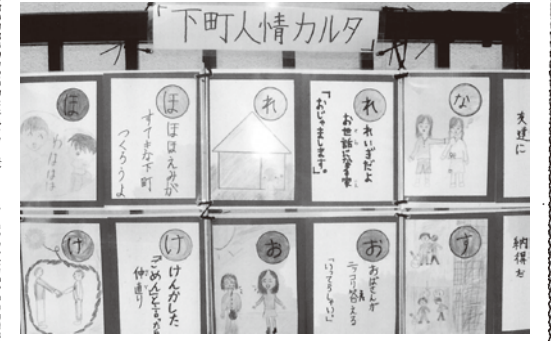 「下町人情カルタ」
ほ
わははは
ほ
ほほえみが
すてきな下町
つくろうよ
れ
れ
れいぎだよ
お世話になる家
「おじゃまします。」
な
友達に
け
け
けんかした
「ごめん」と言ったら
仲直り
お
お
おばさんが
ニッコリ笑える
「いってらっしゃい。」
す
納得を